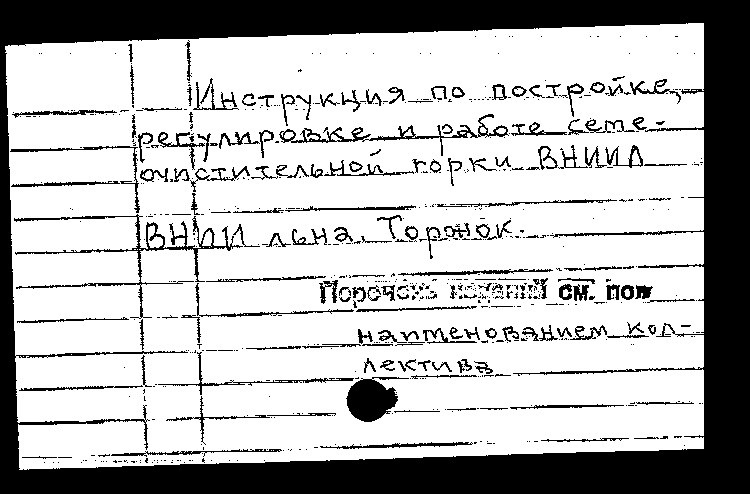 Инструкция по постройке,
регулировке и работе семе-
очистительной горки ВНИИЛ
ВНИИ льна. Торжок.
Перечень изданий см. под
наименованием кол-
лектива